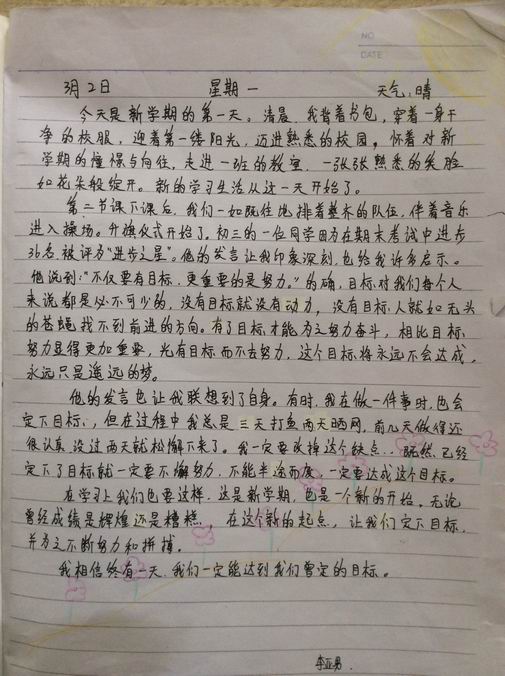 NO
DATE
3月2日 星期一 天气:晴
今天是新学期的第一天。清晨,我背着书包,穿着一身干
净的校服,迎着第一缕阳光,迈进熟悉的校园。怀着对新
学期的憧憬与向往,走进一班的教室,一张张熟悉的笑脸
如花朵般绽开。新的学习生活从这一天开始了。
第二节课下课后,我们一如既往地排着整齐的队伍,伴着音乐
进入操场。升旗仪式开始了,初三的一位同学因为在期末考试中进步
36名,被评为“进步之星”。他的发言让我印象深刻,也给我许多启示。
他说到:“不仅要有目标,更重要的是努力。”的确,目标对我们每个人
来说都是必不可少的,没有目标就没有动力,没有目标,人就如无头
的苍蝇,找不到前进的方向。有了目标,才能为之努力奋斗,相比目标,
努力显得更加重要,光有目标而不去努力,这个目标将永远不会达成,
永远只是遥远的梦。
他的发言也让我联想到了自身。有时,我在做一件事时,也会
定下目标,但在过程中我总是三天打鱼两天晒网,前几天做得还
很认真,没过两天就松懈下来了。我一定要改掉这个缺点,既然已经
定下了目标,就一定要不懈努力,不能半途而废,一定要达成这个目标。
在学习上我们也要这样,这是新学期,也是一个新的开始,无论
曾经成绩是辉煌还是糟糕,在这个新的起点,让我们定下目标,
并为之不断努力和拼搏。
我相信终有一天,我们一定能达到我们暂定的目标。
李亚男